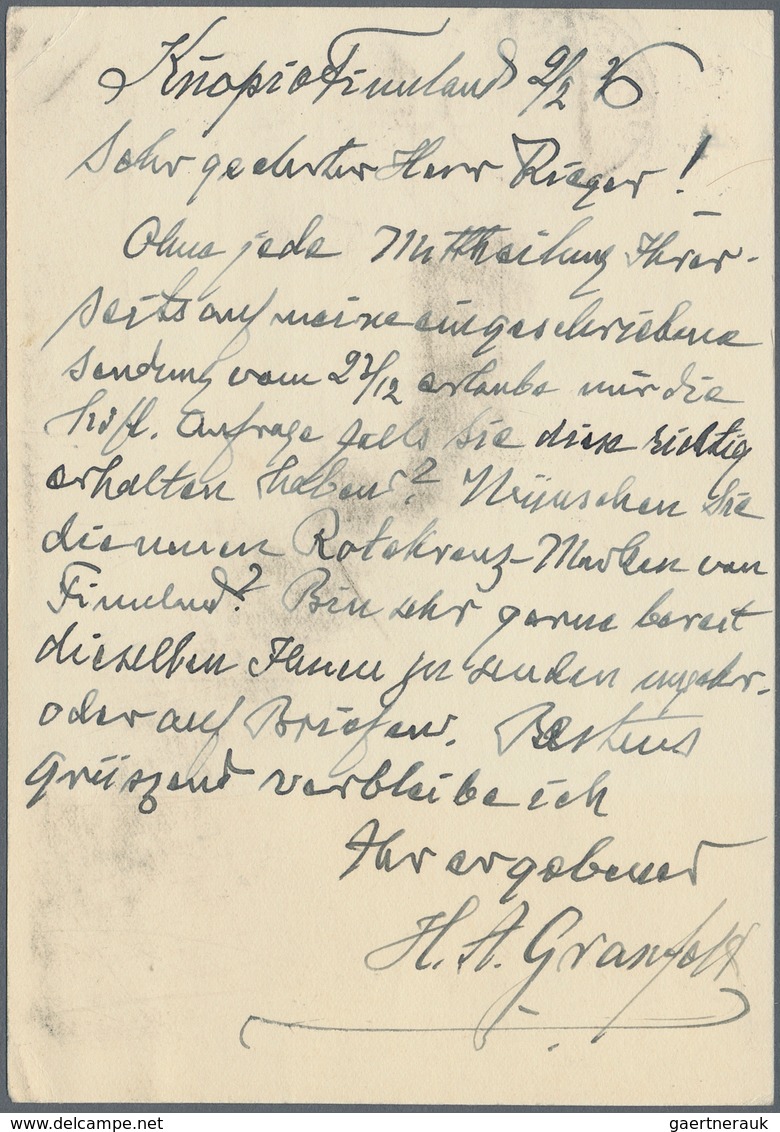 Kuopio Finnland 9/2 36
Sehr geehrter Herr Rieger!
Ohne jede Mittheilung Ihrer-
seits auf meine eingeschriebene
Sendung vom 27/12 erlaube mir die
höfl. Anfrage falls Sie diese richtig
erhalten haben? Wünschen Sie
die neuen Rotekreuz-Marken von
Finnland? Bin sehr gerne bereit
dieselben Ihnen zu senden ungebr.
oder auf Briefen. Bestens
grüszend verbleibe ich
Ihr ergebener
H. A. Granfelt
Delcampe.net
gaertnerauk